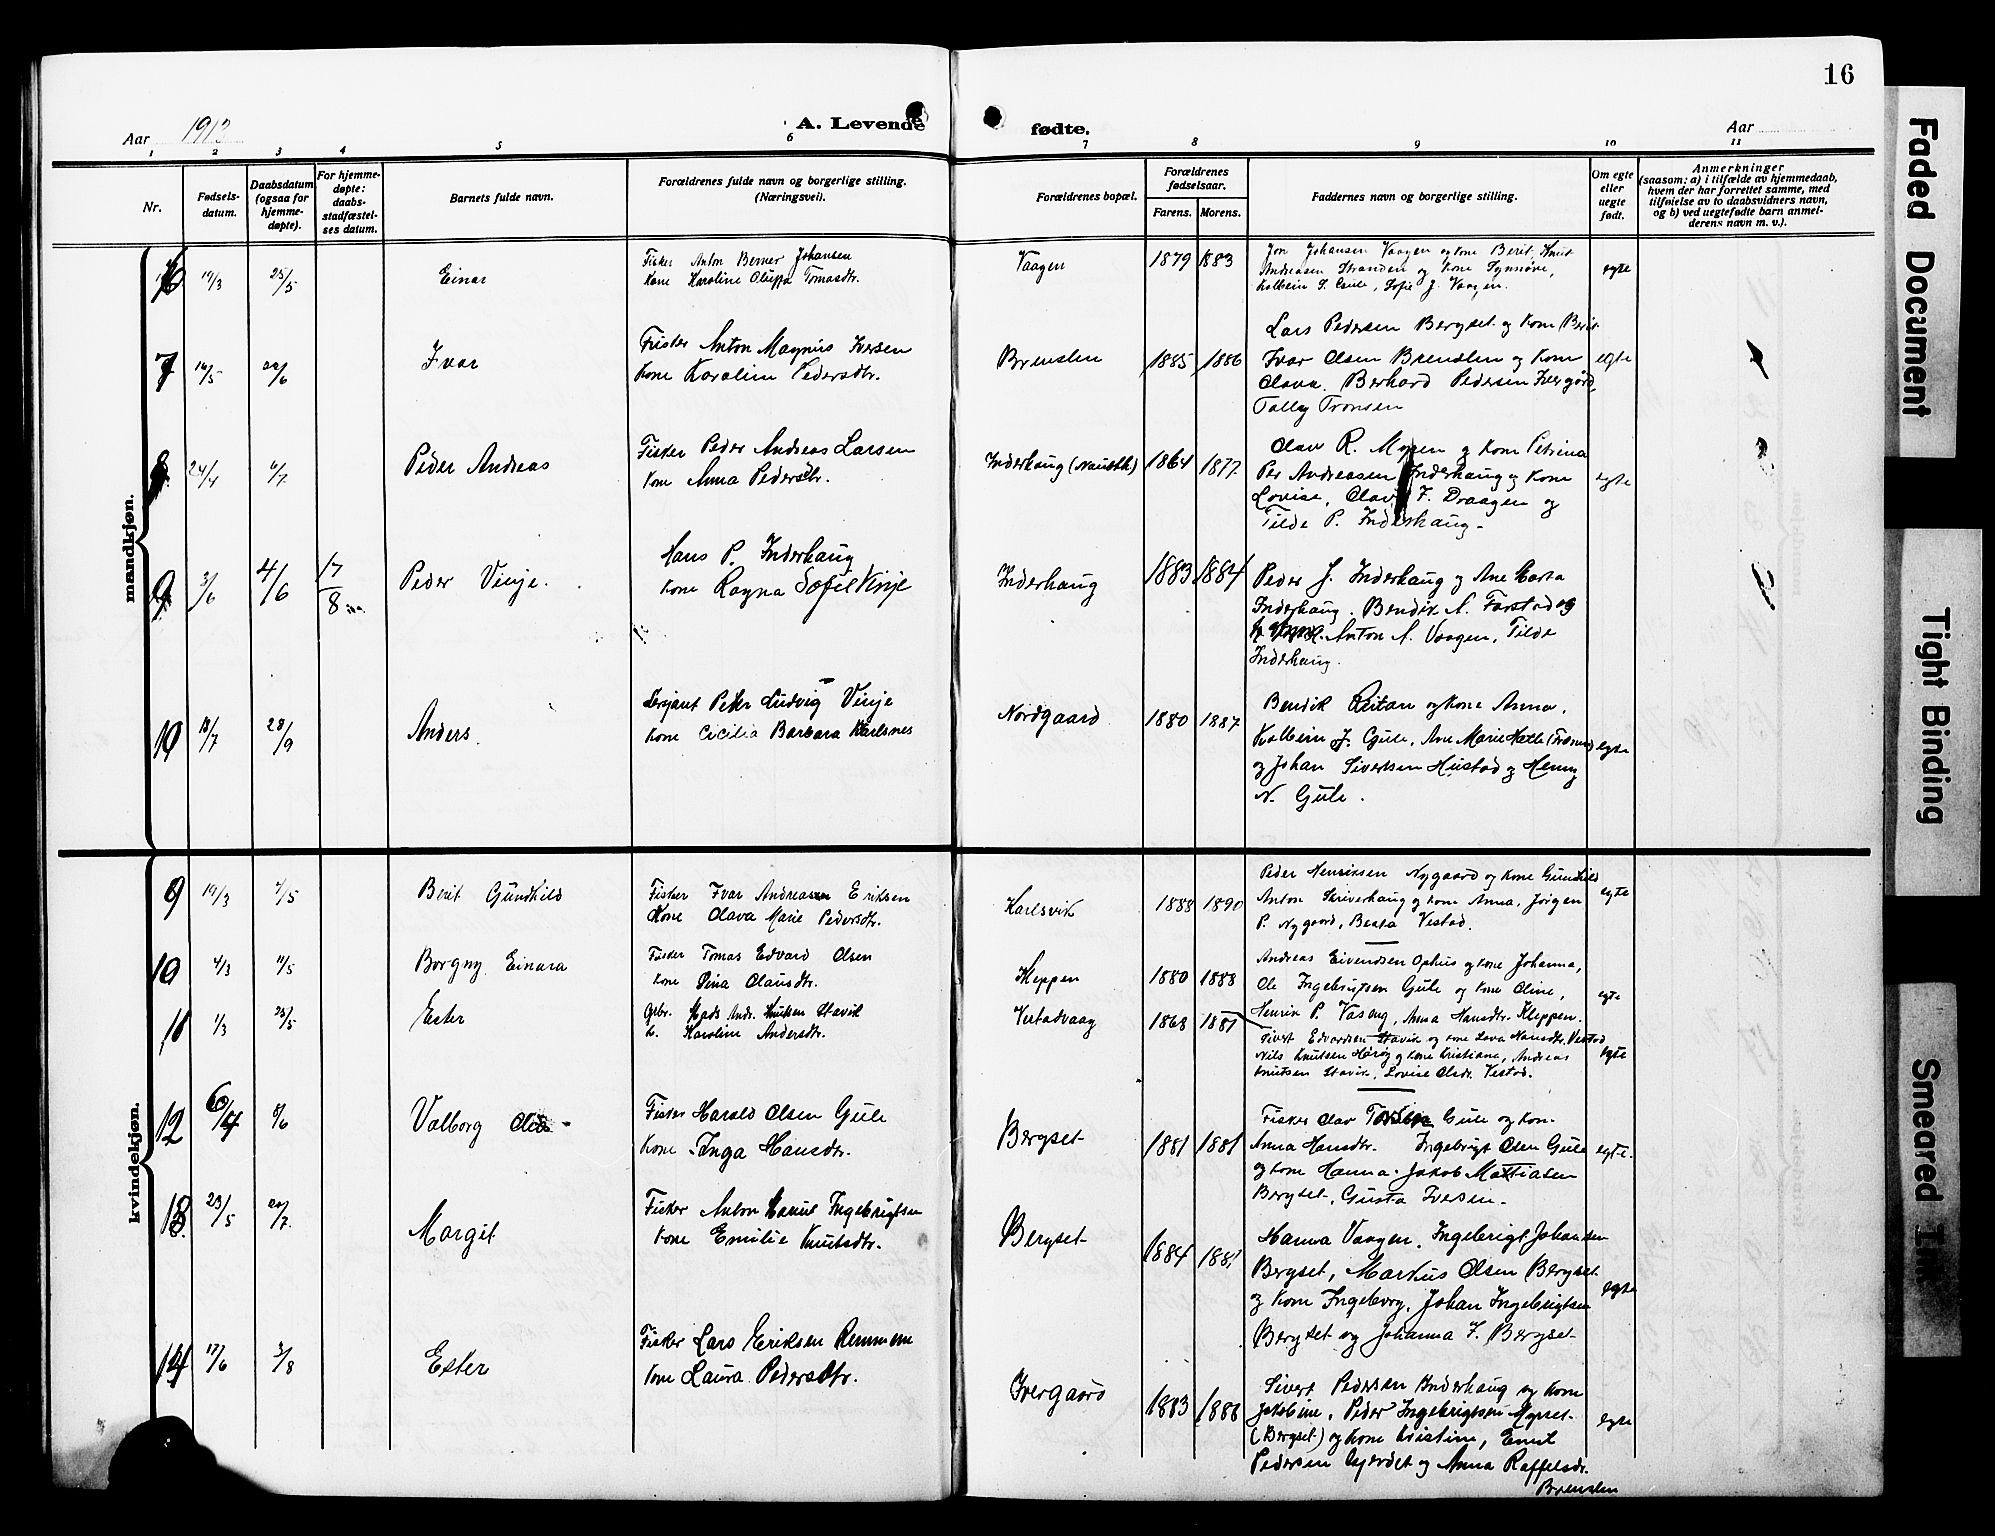 16
Aar 1913
A. Levende
fødte.
Aar
1 2 3 4 5 6
7 8 9 10 11
Nr.
Fødsels-
datum.
Daabsdatum
(ogsaa for
hjemme-
døpte).
For hjemme-
døpte:
daabs-
stadfæstel-
ses datum.
Barnets fulde navn.
Forældrenes fulde navn og borgerlige stilling.
(Næringsvei).
Forældrenes bopæl.
Forældrenes
fødselsaar.
Farens. Morens.
Faddernes navn og borgerlige stilling.
Om egte
eller
uegte
født.
Anmerkninger
(saasom: a) i tilfælde av hjemmedaab,
hvem der har forrettet samme, med
tilføielse av to daabsvidners navn,
og b) ved uegtefødte barn anmel-
derens navn m. v.).
mandkjøn.
6 19/3 25/5 Einar
Fisker Anton Berner Johansen
Kone Karoline Oluffa Tomasdtr.
Vaagen 1879 1883
Jon Johansen Vaagen og kone Berit, Knut
Andreasen Stranden og kone Synnøve,
Kolbein S. Gule, Sofie J. Vaagen.
egte
7 16/5 22/6 Ivar
Fisker Anton Magnus Iversen
Kone Karolin Pedersdtr.
Brenslen 1885 1886
Lars Pedersen Bergset og kone Berit
Ivar Olsen Brenslen og Kone
Olava. Berhard Pedersen Ivergård,
Tally Tronsen
egte
8 24/4 6/7 Peder Andreas
Fisker Peder Andreas Larsen
Kone Anna Pedersdtr.
Inderhaug (Naustbk) 1864 1877.
Olav R. Myren og kone Petrina
Per Andreasen Inderhaug og Kone
Lovise, Olav F. Draagen og
Tilde P. Inderhaug.
egte
9 3/6 4/6 17/8 Peder Vinje.
Hans P. Inderhaug
Kone Ragna Sofie Vinje
Inderhaug 1883 1884
Peder J. Inderhaug og Ane Marta
Inderhaug. Bendik N. Farstad og
Anton A. Vaagen, Tilde
Inderhaug.
10 18/7 28/9 Anders.
Sersjant Peter Ludvig Vinje
Kone Cicilia Barbara Karlsnes
Nordgaard 1880 1887
Bendik Reitan og kone Anna,
Kolbein J. Gule, Ane Marie Hatle
og Johan Sivertsen Hustad og Henny
N. Gule.
egte
kvindekjøn.
9 19/3 4/5 Berit Gundhild
Fisker Ivar Andreasen Eriksen
Kone Olava Marie Pedersdtr.
Karlsvik 1888 1890
Peder Henriksen Nygaard og kone Gunhild
Anton Skriverhaug og kone Anna, Jørgen
P. Nygaard, Beata Vestad.
egte
10 4/3 11/5 Borgny Einara
Fisker Tomas Edvard Olsen
Kone Pina Olausdtr.
Kleppen 1880 1888
Andreas Eivendsen Ophus og kone Johanna,
Ole Ingebrigtsen Gule og kone Oline,
Henrik P. Vaseng, Anna Hansdtr. Kleppen.
egte
11 1/3 25/5 Ester
Gbr. Mads Andr. Knutsen Stavik
k. Karoline Andersdtr.
Vestadvaag 1868 1881
Sivert Edvardsen Stavik og kone Lava Hansdtr. Vestad
Nils Knutsen Horøy og kone Kristiane, Andreas
Knutsen Stavik, Lovise Olsdr. Vestad.
egte
12 6/4 8/6 Valborg
Fisker Harald Olsen Gule
Kone Inga Hansdtr.
Bergset 1881 1881
Fisker Olav Gule og kon
Anna Hansdtr. Ingebrigt Olsen Gule
og kone Hanna. Jakob Mattiasen
Bergset, Gusta Iversen.
egte.
13 23/5 20/7 Margit
Fisker Anton Marius Ingebrigtsen
Kone Emilie Knutsdtr.
Bergset 1884 1881
Hanna Vaagen, Ingebrigt Johansen
Bergset, Markus Olsen Bergset
og kone Ingeborg, Johan Ingebrigtsen
Bergset og Johanna I. Bergset
egte
14 17/6 3/8 Ester
Fisker Lars Eriksen Remmem
Kone Laura Pedersdtr.
Ivergaard 1883 1888
Sivert Pedersen Inderhaug og kone
Jakobine, Peder Ingebrigtsen Myrset
(Bergset) og kone Kristine, Emil
Pedersen Gjerdet og Anna Raffelsdr.
Brenslen
egte
Faded Document
Tight Binding
Smeared Ink